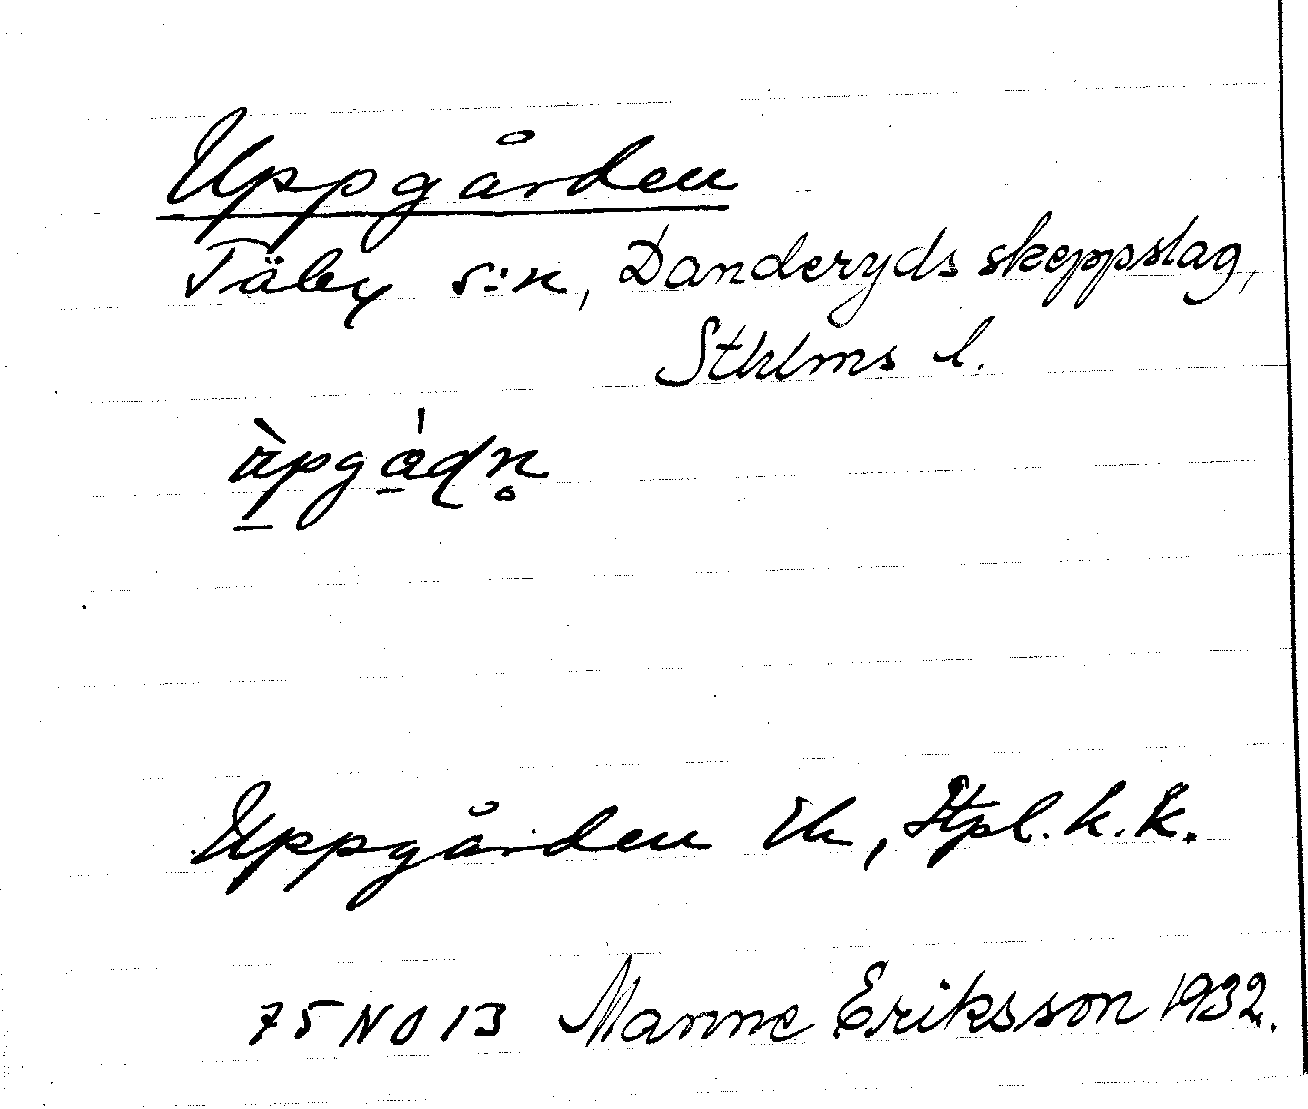 Uppgården
Täby s:n, Danderyds skeppslag,
Sthlms l.
Uppgården Ek, Htpl. k. K.
75 NO 13 Manne Eriksson 1932.